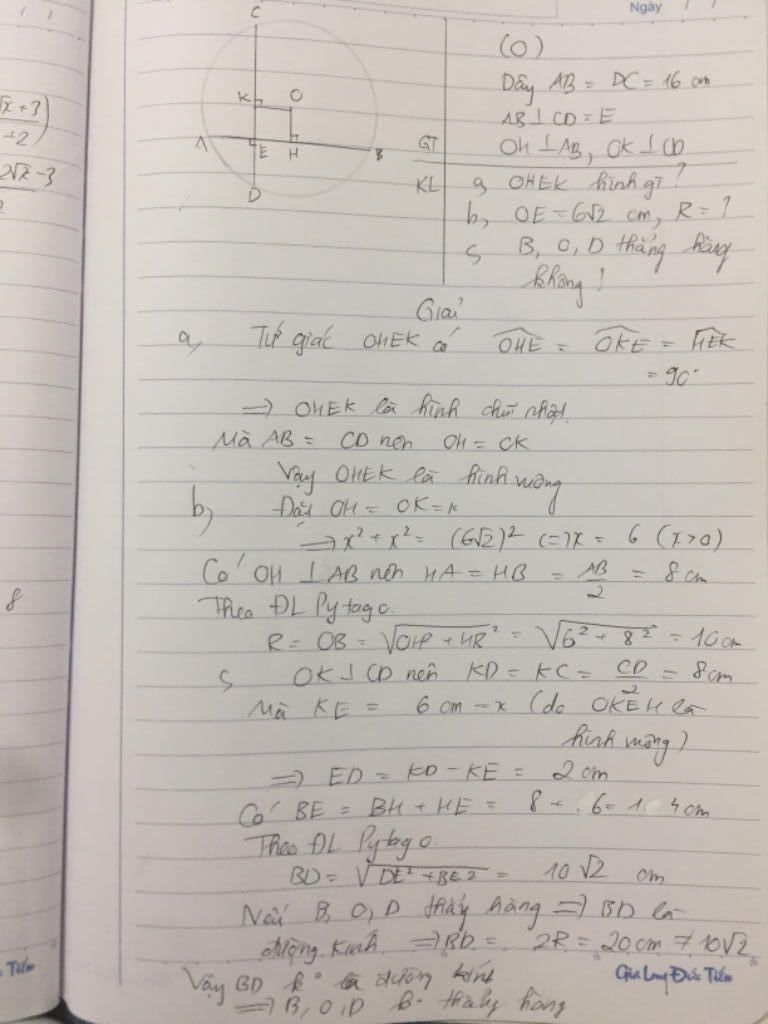 Ngày
√x + 3)
+2)
2√x - 3
2
8
C
K
O
A
E
H
B
D
(O)
Dây AB = DC = 16 cm
AB ⊥ CD = E
GT
OH ⊥ AB, OK ⊥ CD
KL
a, OHEK hình gì ?
b, OE = 6√2 cm, R = ?
c, B, O, D thẳng hàng
không ?
Giải
a, Tứ giác OHEK có OHE = OKE = HEK
= 90°
=> OHEK là hình chữ nhật.
Mà AB = CD nên OH = OK
Vậy OHEK là hình vuông
b, Đặt OH = OK = x
=> x² + x² = (6√2)² <=> x = 6 (x>0)
Có OH ⊥ AB nên HA = HB = AB/2 = 8 cm
Theo ĐL Pytago.
R = OB = √OH² + HB² = √6² + 8² = 10 cm
c, OK ⊥ CD nên KD = KC = CD/2 = 8 cm
Mà KE = 6 cm = x (do OKEH là
hình vuông)
=> ED = KD - KE = 2 cm
Có BE = BH + HE = 8 + 6 = 14 cm
Theo ĐL Pytago.
BD = √DE² + BE² = 10√2 cm
Nếu B, O, D thẳng hàng => BD là
đường kính => BD = 2R = 20 cm ≠ 10√2
Vậy BD k° là đường kính
=> B, O, D k° thẳng hàng
Tiến
Gia Long Đức Tiến